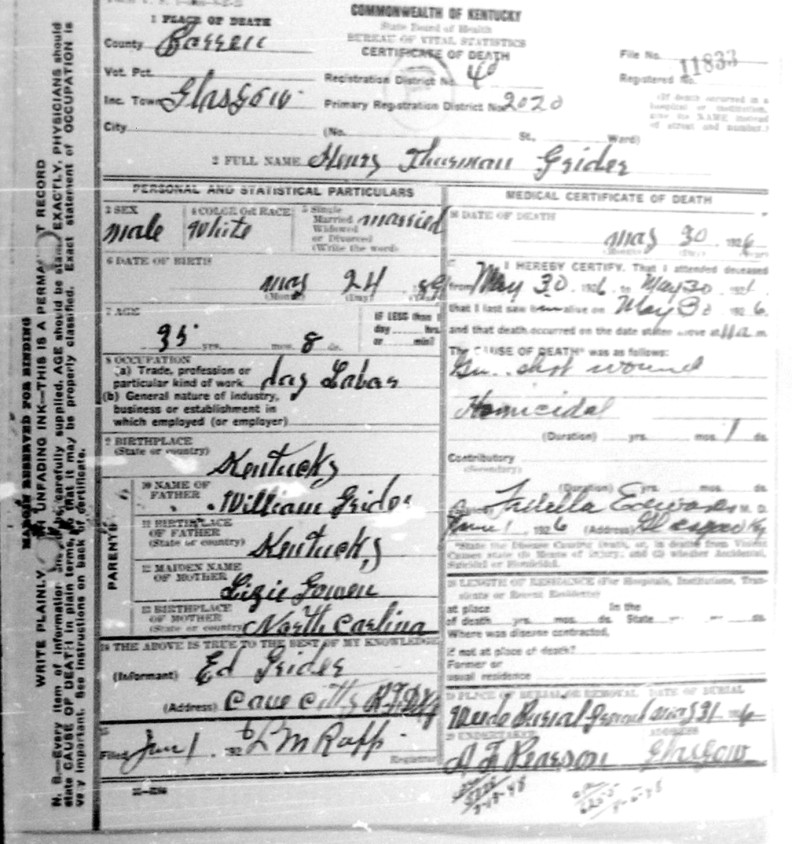 COMMONWEALTH OF KENTUCKY
State Board of Health
BUREAU OF VITAL STATISTICS
CERTIFICATE OF DEATH
1 PLACE OF DEATH
County Barren
Vot. Pct.
Inc. Town Glasgow
City
Registration District No. 40
Primary Registration District No. 2020
(No. St., Ward)
File No. 11833
Registered No.
(If death occurred in a
hospital or institution,
give its NAME instead
of street and number.)
2 FULL NAME Henry Thurman Grider
PERSONAL AND STATISTICAL PARTICULARS
3 SEX
male
4 COLOR OR RACE
White
5 Single
Married
Widowed
or Divorced
(Write the word)
married
6 DATE OF BIRTH
May 24 89
(Month) (Day) (Year)
7 AGE
35 yrs. mos. 8 ds.
IF LESS than 1
day hrs.
or min?
8 OCCUPATION
(a) Trade, profession or
particular kind of work day Labor
(b) General nature of industry,
business or establishment in
which employed (or employer)
9 BIRTHPLACE
(State or country)
Kentucky
PARENTS
10 NAME OF
FATHER William Grider
11 BIRTHPLACE
OF FATHER
(State or country) Kentucky
12 MAIDEN NAME
OF MOTHER
Lizie Gowen
13 BIRTHPLACE
OF MOTHER
(State or country) North Carlina
14 THE ABOVE IS TRUE TO THE BEST OF MY KNOWLEDGE
(Informant) Ed Grider
(Address) Cave City
15
Filed Jun 1 192 6 L M Rapp
Registrar
MEDICAL CERTIFICATE OF DEATH
16 DATE OF DEATH
May 30 1926
(Month) (Day) (Year)
I HEREBY CERTIFY, That I attended deceased
from May 30 1926 to May 30 192
that I last saw him alive on May 30 1926
and that death occurred on the date stated above at 11 a m.
The CAUSE OF DEATH* was as follows:
shot wound
Homicidal
(Duration) yrs. mos. 1 ds.
Contributory
(Secondary)
(Duration) yrs. mos. ds.
Edwards M. D.
June 1 1926 (Address) Glasgow Ky
*State the Disease Causing Death, or, in deaths from Violent
Causes state (1) Means of Injury; and (2) whether Accidental,
Suicidal or Homicidal.
18 LENGTH OF RESIDENCE (For Hospitals, Institutions, Transients
or Recent Residents)
at place
of death yrs. mos. ds.
In the
State yrs. mos. ds.
Where was disease contracted,
if not at place of death?
Former or
usual residence
19 PLACE OF BURIAL OR REMOVAL DATE OF BURIAL
Burial Ground May 31
20 UNDERTAKER ADDRESS
Pearson Glasgow
MARGIN RESERVED FOR BINDING
WRITE PLAINLY UNFADING INK—THIS IS A PERMA T RECORD
N. B.—Every item of information carefully supplied. AGE should be stated EXACTLY. PHYSICIANS should
state CAUSE OF DEATH in plain terms, so that it may be properly classified. Exact statement of OCCUPATION is
very important. See instructions on back of certificate.